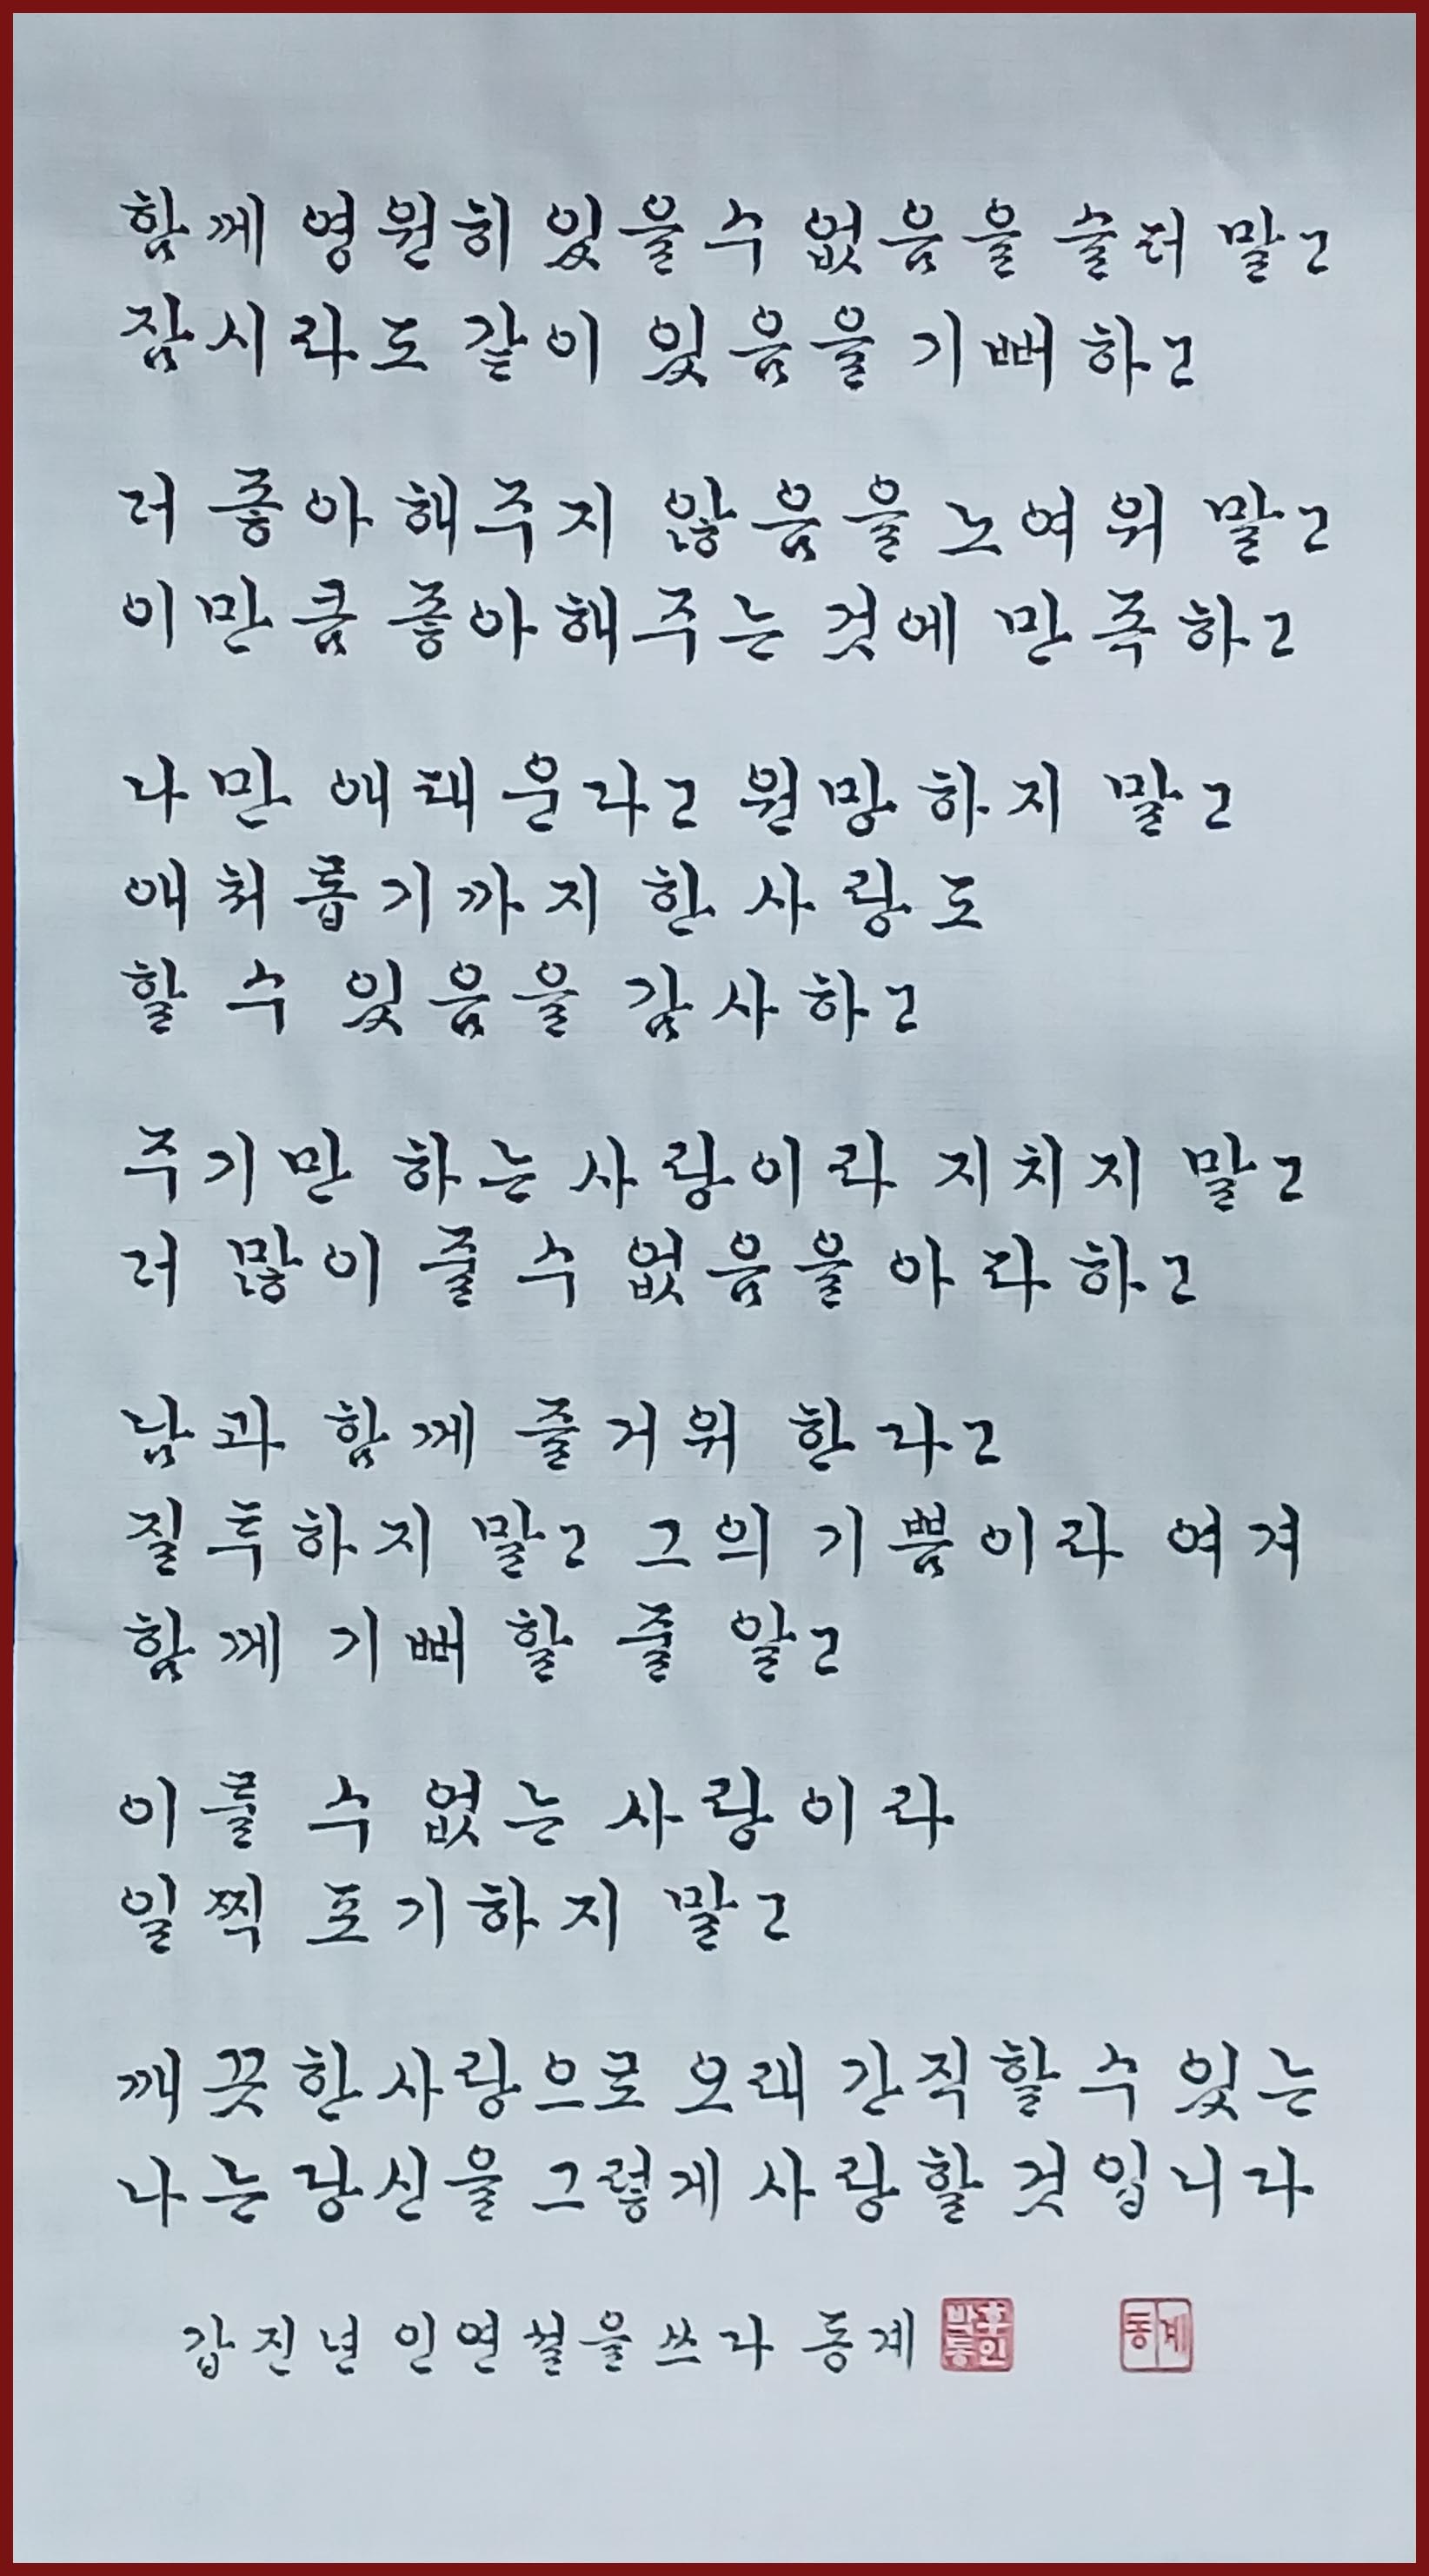 함께 영원히 있을수 없음을 슬퍼 말고
잠시라도 같이 있음을 기뻐하고
더 좋아해주지 않음을 노여워 말고
이만큼 좋아해주는 것에 만족하고
나만 애태운다고 원망하지 말고
애처롭기까지 한 사랑도
할 수 있음을 감사하고
주기만 하는 사랑이라 지치지 말고
더 많이 줄 수 없음을 아파하고
남과 함께 즐거워 한다고
질투하지 말고 그의 기쁨이라 여겨
함께 기뻐 할 줄 알고
이룰 수 없는 사랑이라
일찍 포기하지 말고
깨끗한 사랑으로 오래 간직할수 있는
나는 당신을 그렇게 사랑할 것입니다
갑진년 인연설을 쓰다 동계
동계